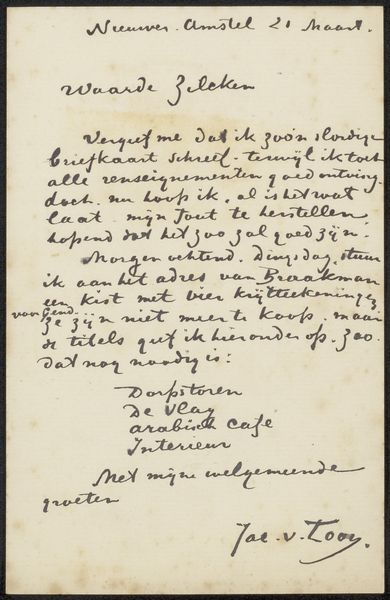 Nieuwer. Amstel 21 Maart.
Waarde Zilcken
Vergeef me dat ik zoo'n slordige
briefkaart schreef. terwijl ik toch
alle renseignementen goed ontving.
doch. nu hoop ik, al is het wat
laat mijn fout te herstellen
hopend dat het zoo zal goed zijn.
Morgen ochtend. Dingsdag, stuur
ik aan het adres van Braakman
een kist met vier krijtteekeningen
voor Gend.
ze zijn niet meer te koop. maar
de titels geef ik hieronder op. zoo
dat nog noodig is:
Dorpstoren
De Vlag
Arabisch Café
Interieur
Met mijne welgemeende
groeten
Jac. v. Looy.